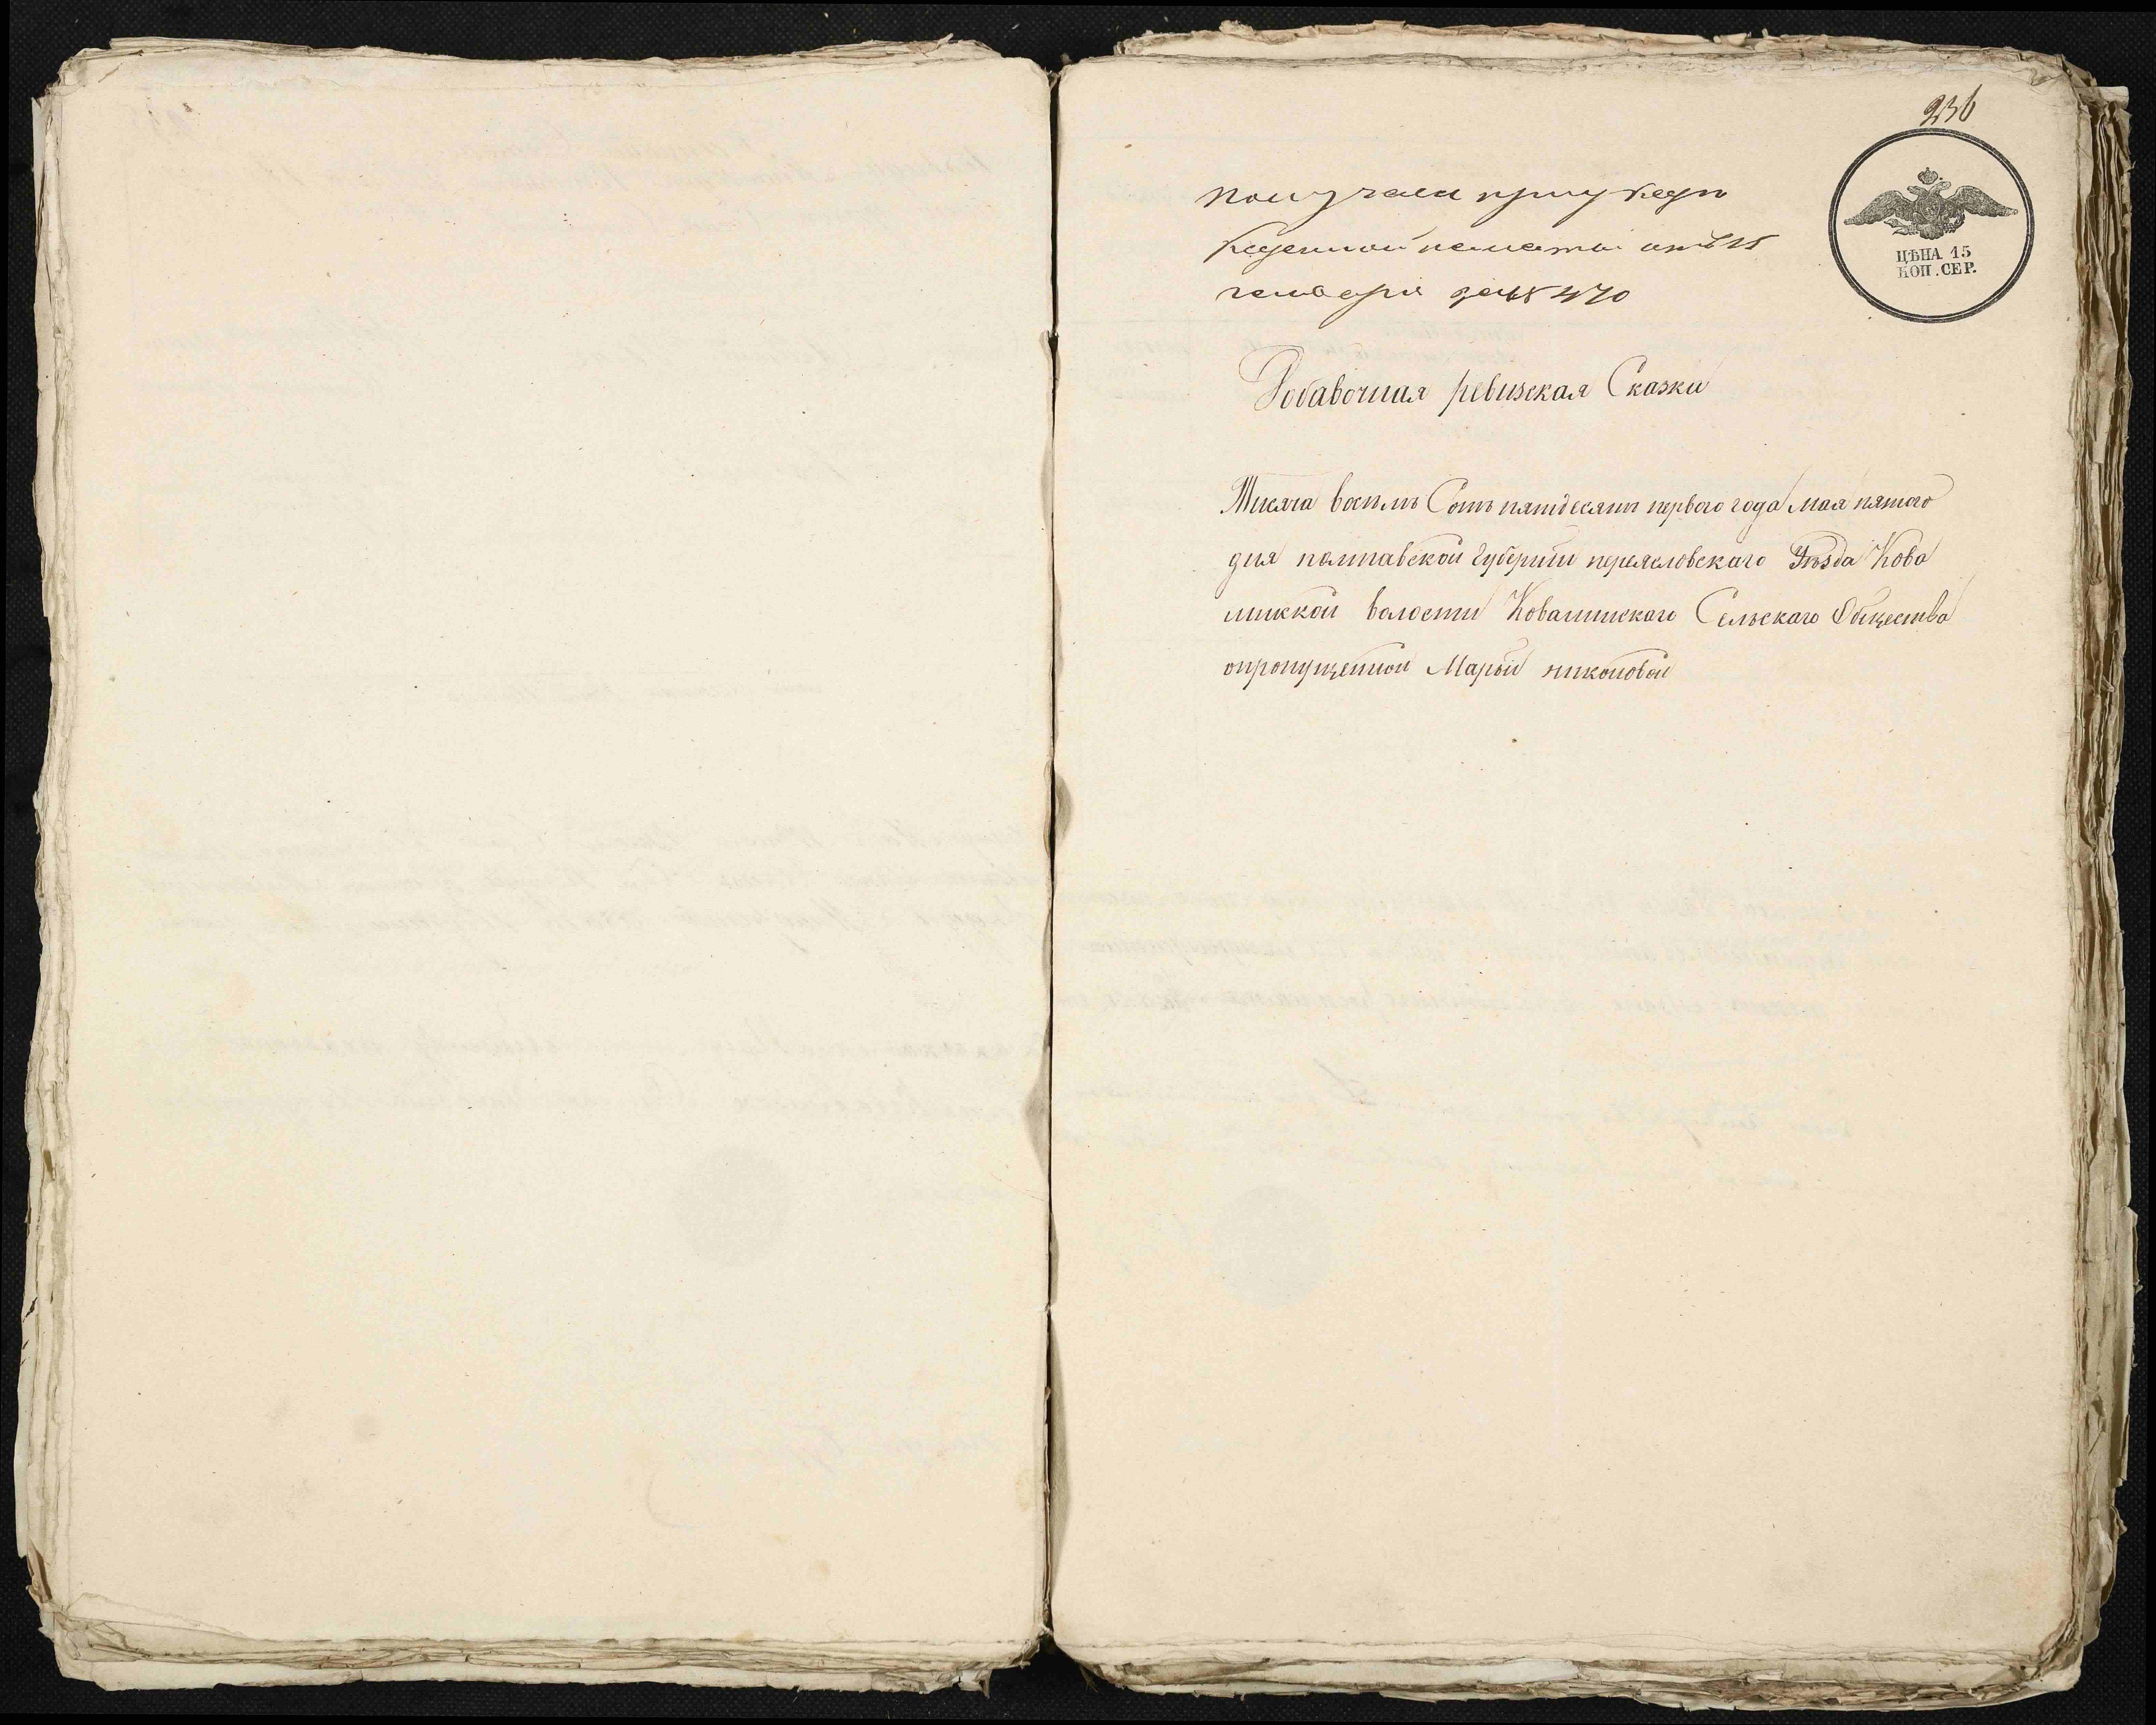 236
ЦѢНА 15
КОП. СЕР.
казенной палаты отъ 15
генваря за № 470
Добавочная ревизская Сказки
Тисяча восемь Сотъ пятдесятъ первого года мая пятого
дня полтавской Губернии переясловскаго Уѣзда Кова
линской волости Ковалинскаго Сельскаго Общества
опропущенной Марьи никоновой